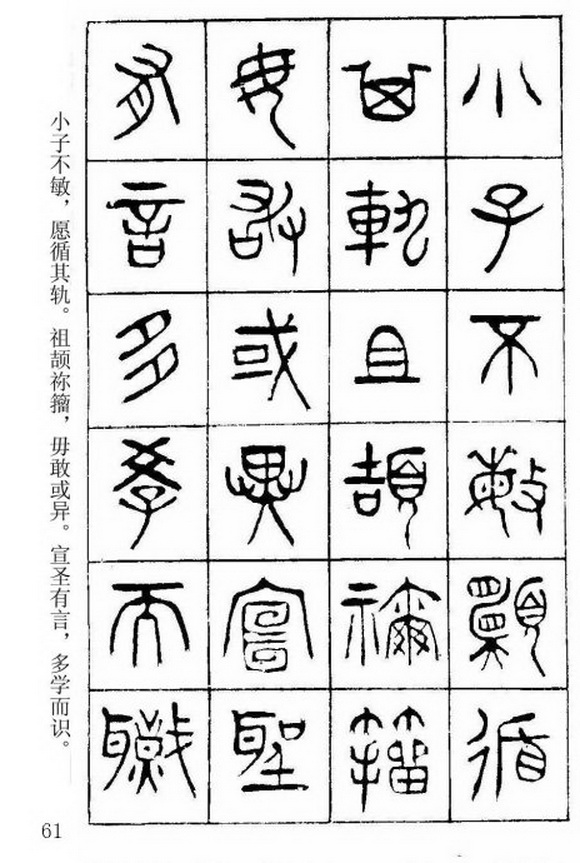 小子不敏願循
其軌且頡禰籀
毋敢或異宣聖
有言多學而職
小子不敏，愿循其轨。祖颉祢籀，毋敢或异。宣圣有言，多学而识。
61